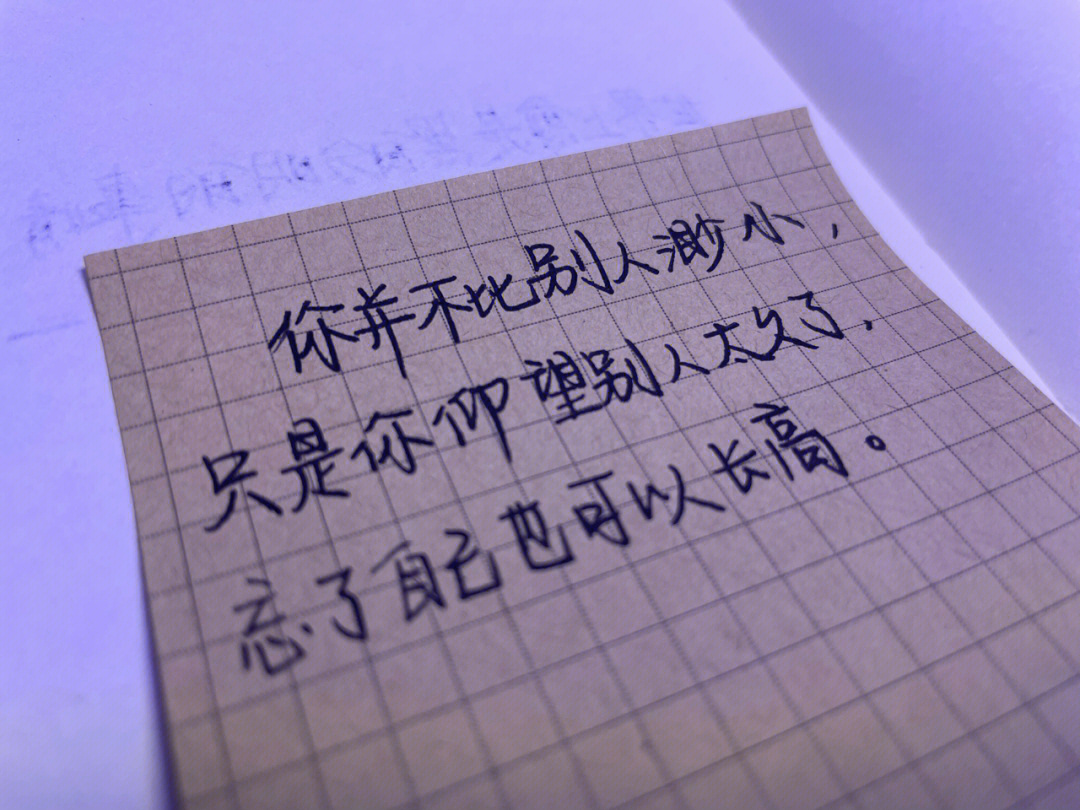 你并不比别人渺小，
只是你仰望别人太久了，
忘了自己也可以长高。